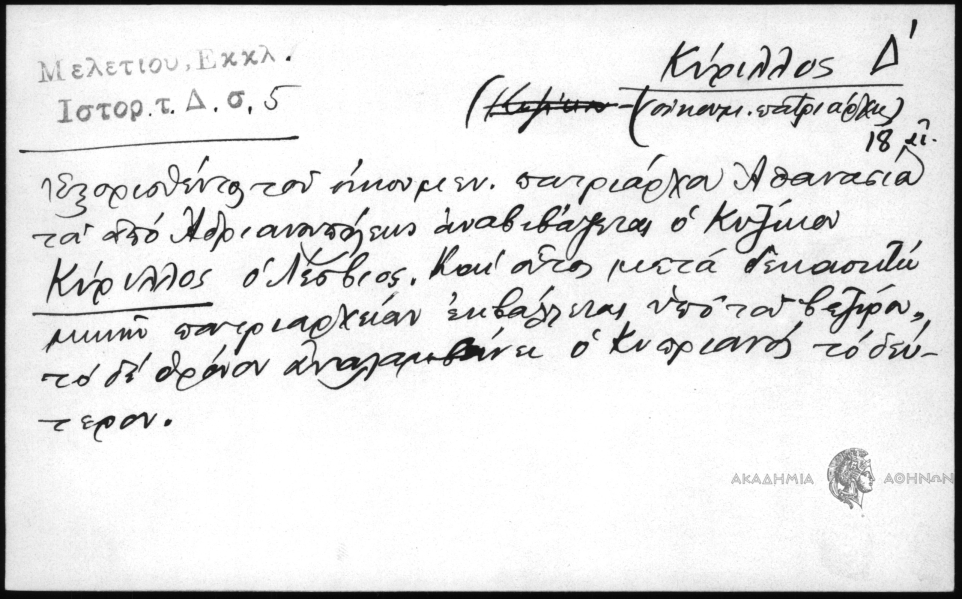 Μελετίου, Εκκλ.
Ιστορ. τ. Δ. σ. 5
Κύριλλος Δ'
(Κυζίκου (οἰκουμ. πατριάρχης)
18 αἰ.
Ἐξορισθέντος τοῦ οἰκουμεν. πατριάρχου Ἀθανασίου
τοῦ ἀπό Ἀδριανουπόλεως ἀναβιβάζεται ὁ Κυζίκου
Κύριλλος ὁ Λέσβιος. Καί οὗτος μετά
πατριαρχείαν ἐκβάλλεται ὑπό τοῦ βεζίρου,
τό δέ θρόνον ἀναλαμβάνει ὁ Κυπριανός τό δεύ-
τερον.
ΑΚΑΔΗΜΙΑ ΑΘΗΝΩΝ